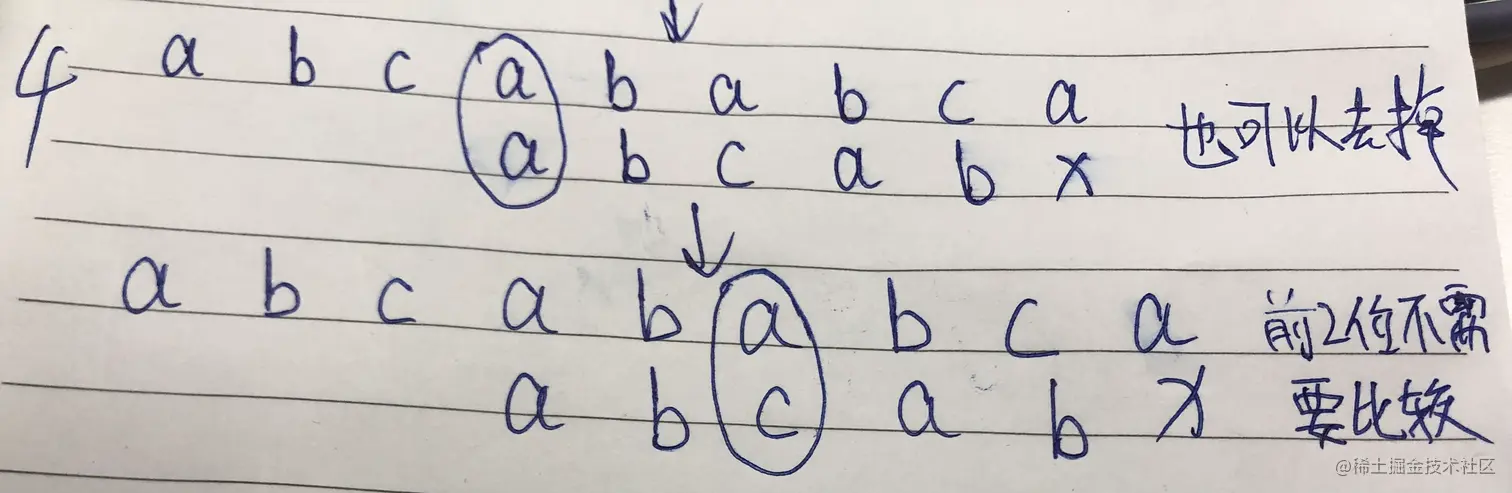 4 a b c a b a b c a 也可以去掉
a b c a b x
a b c a b a b c a 前2位不需
a b c a b x 要比较
@稀土掘金技术社区